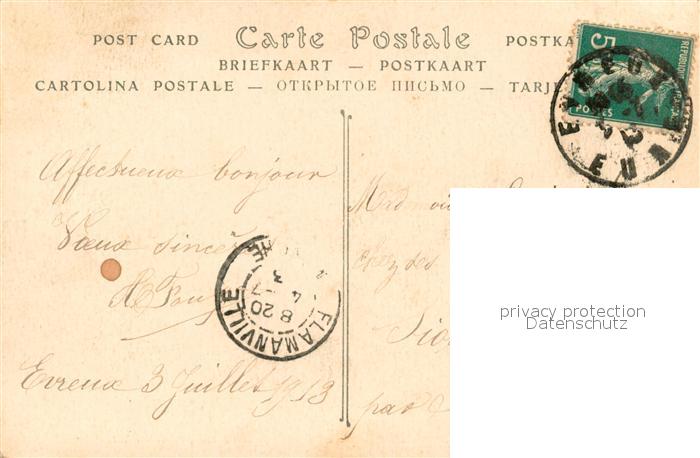 POST CARD Carte Postale POSTKA
BRIEFKAART — POSTKAART
CARTOLINA POSTALE — ОТКРЫТОЕ ПИСЬМО — TARJE
5
REPUBLIQUE
POSTES
EVREUX
EURE
Affectueux bonjour
Vœux sincères
FLAMANVILLE
8 20
4 -7
3
Evreux 3 Juillet 1913
chez des
par
privacy protection
Datenschutz